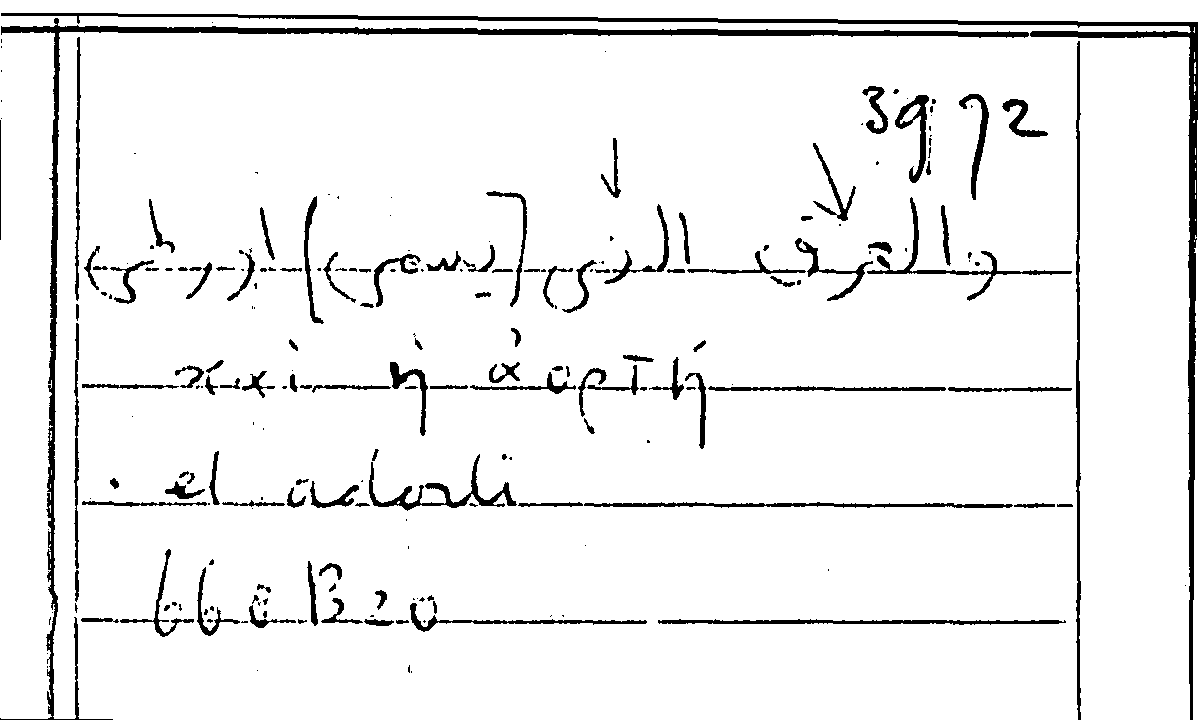 3972
والعرق الذي [يسمى] اورطى
καὶ ἡ ἀορτή
· el adorti
668B20